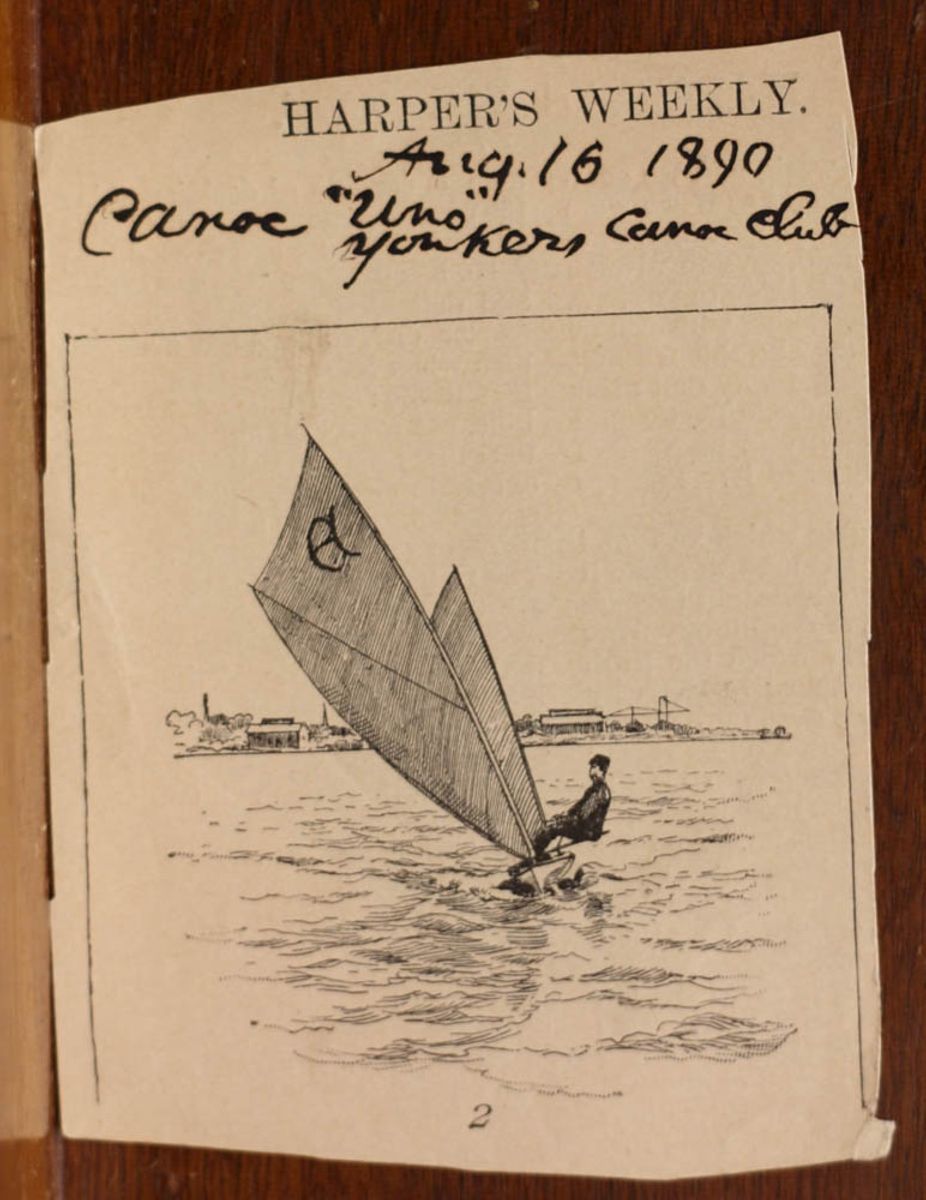 HARPER'S WEEKLY.
Aug. 16 1890
Canoe "Uno"
Yonkers Canoe Club
2